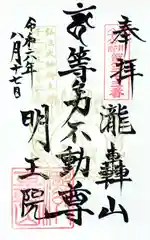 奉拝
瀧轟山
等々力不動尊
明王院
令和六年
八月十七日